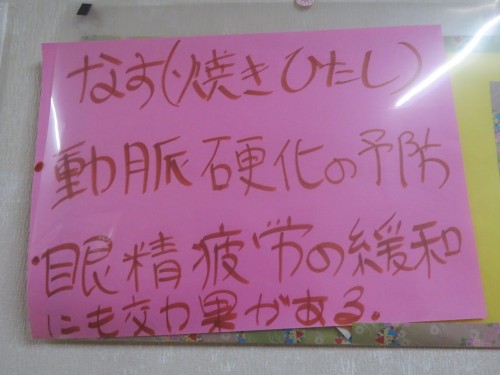 なす(焼きひたし)
・動脈硬化の予防
・眼精疲労の緩和
にも効果がある.